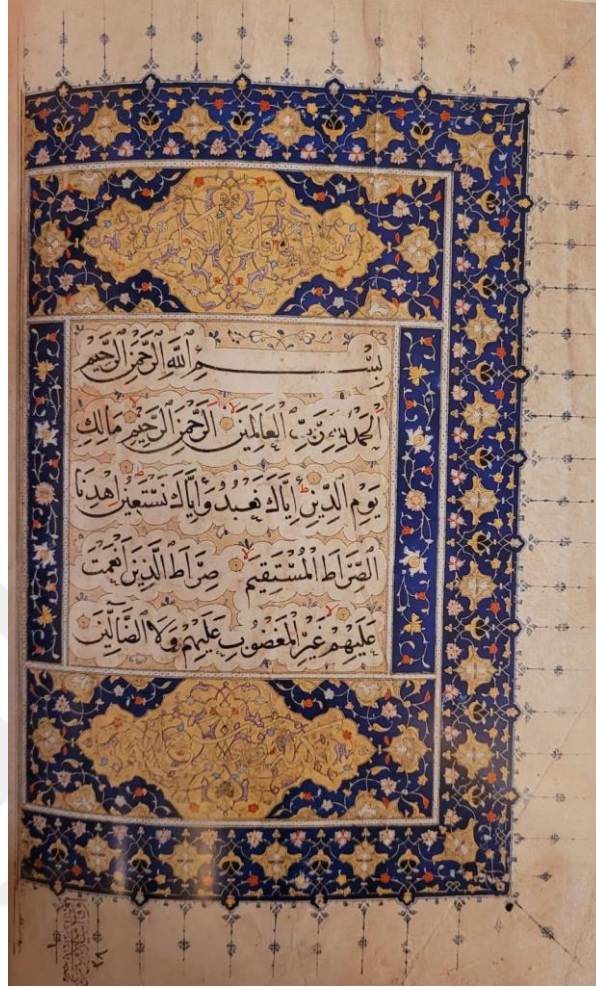 بِسْمِ ٱللَّهِ ٱلرَّحْمَٰنِ ٱلرَّحِيمِ
ٱلْحَمْدُ لِلَّهِ رَبِّ ٱلْعَالَمِينَ ٱلرَّحْمَٰنِ ٱلرَّحِيمِ مَالِكِ
يَوْمِ ٱلدِّينِ إِيَّاكَ نَعْبُدُ وَإِيَّاكَ نَسْتَعِينُ ٱهْدِنَا
ٱلصِّرَاطَ ٱلْمُسْتَقِيمَ صِرَاطَ ٱلَّذِينَ أَنْعَمْتَ
عَلَيْهِمْ غَيْرِ ٱلْمَغْضُوبِ عَلَيْهِمْ وَلَا ٱلضَّآلِّينَ
٢٨